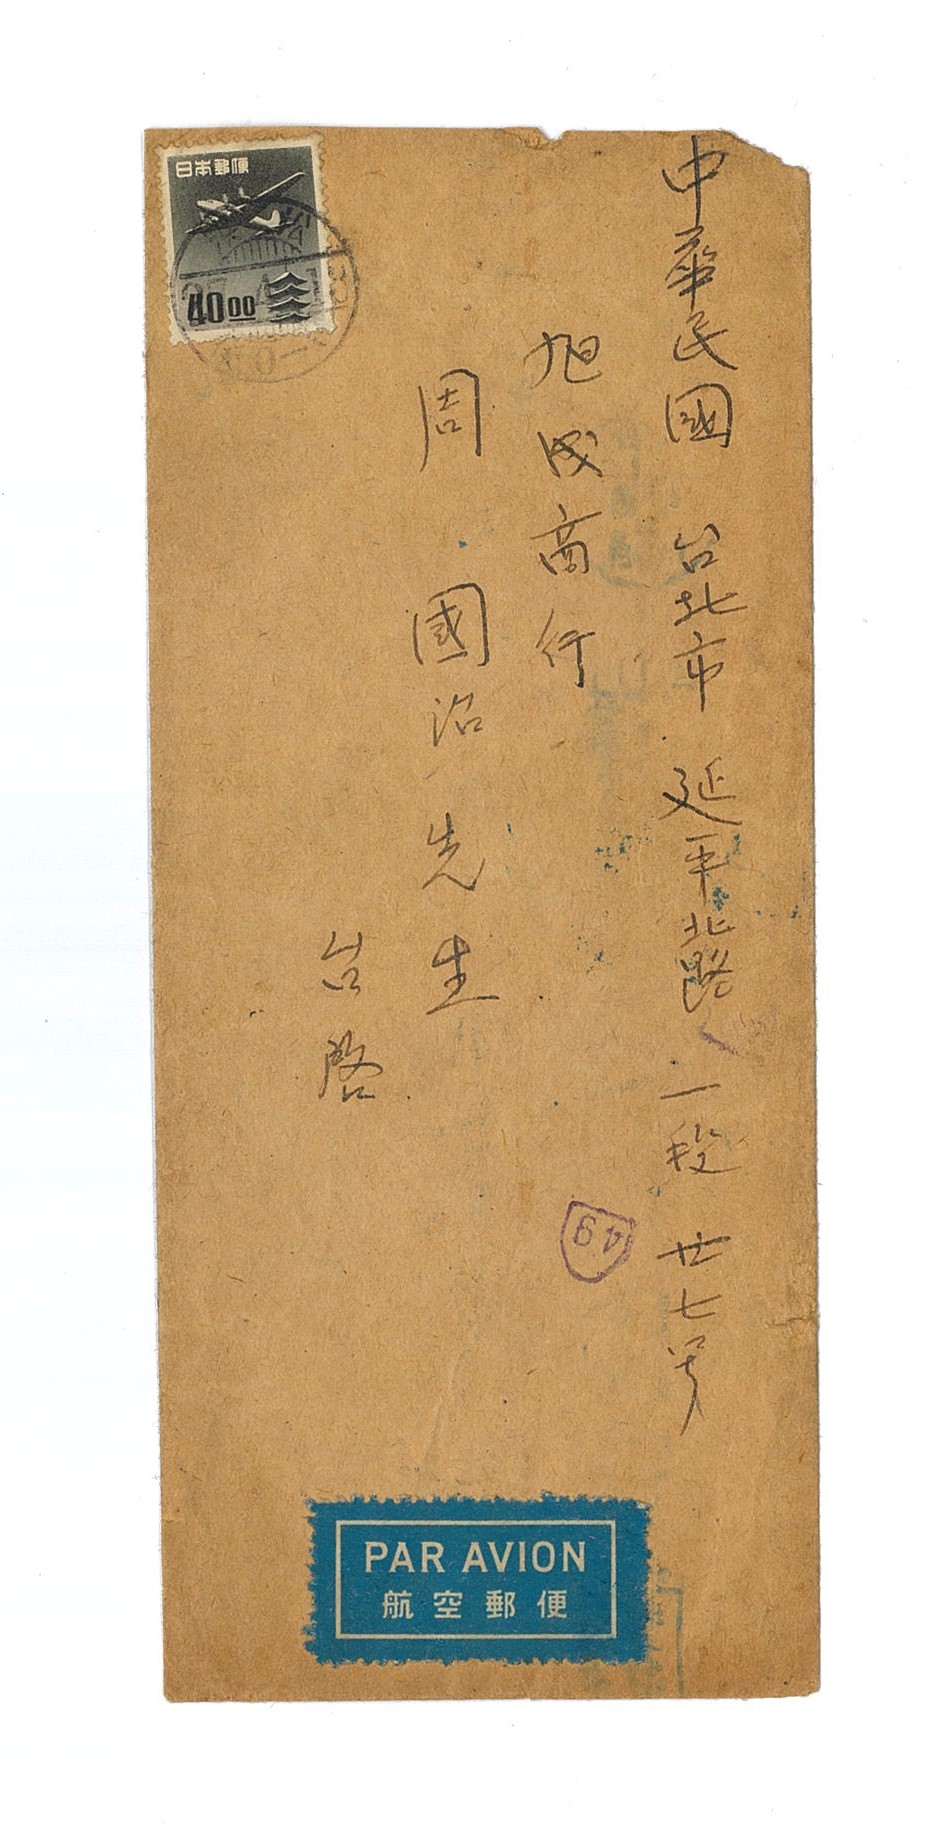 中華民國 台北市 延平北路 一段 廿七号
旭成商行
周 國治先生
台啓
日本郵便
40.00
49
PAR AVION
航空郵便